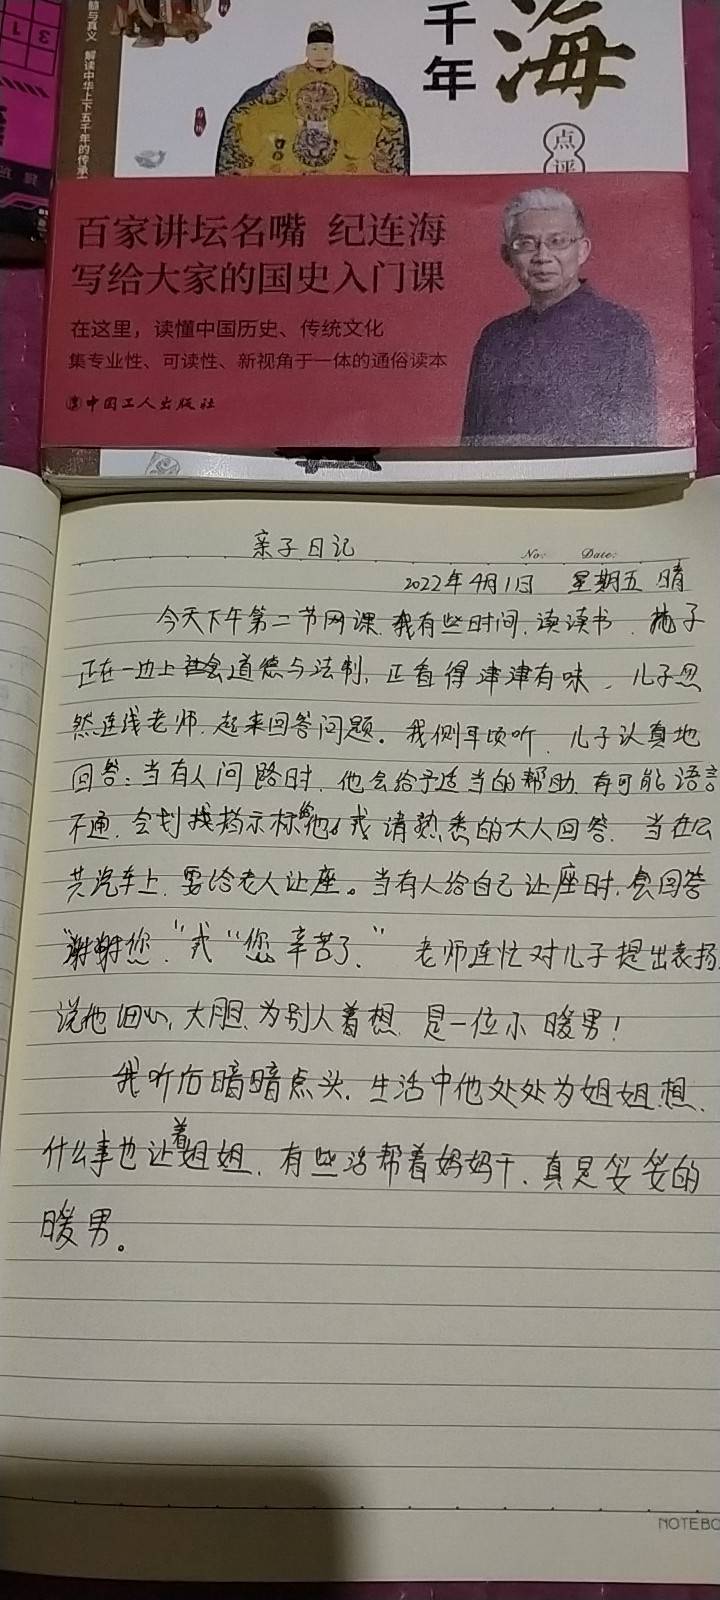 髓与真义 解读中华上下五千年的传承
千年
海
点评
百家讲坛名嘴 纪连海
写给大家的国史入门课
在这里，读懂中国历史、传统文化
集专业性、可读性、新视角于一体的通俗读本
中国工人出版社
亲子日记
No: Date:
2022年4月1日 星期五 晴
今天下午第二节网课,我有些时间,读读书,孩子
正在一边上社会道德与法制,正看得津津有味,儿子忽
然连线老师,起来回答问题。我侧耳倾听,儿子认真地
回答:当有人问路时,他会给予适当的帮助,有可能语言
不通,会划找指示标给他,或请熟悉的大人回答,当在公
共汽车上,要给老人让座。当有人给自己让座时,会回答
“谢谢您,”或“您辛苦了,”老师连忙对儿子提出表扬,
说他细心,大胆,为别人着想,是一位小暖男!
我听后暗暗点头,生活中他处处为姐姐想,
什么事也让着姐姐,有些活帮着妈妈干,真是妥妥的
暖男。
NOTEBO